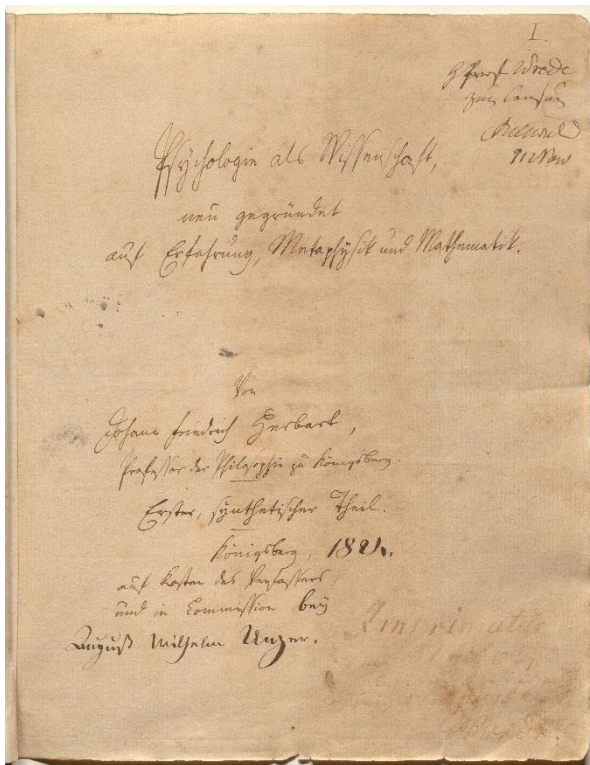 I.
H Prof. Wrede
zur Censur
Psychologie als Wissenschaft,
neu gegründet
auf Erfahrung, Metaphysik und Mathematik.
Von
Johann Friedrich Herbart,
Professor der Philosophie zu Königsberg.
Erster, synthetischer Theil.
Königsberg, 1824.
auf Kosten des Verfassers,
und in Commission bey
August Wilhelm Unzer.
Imprimatur